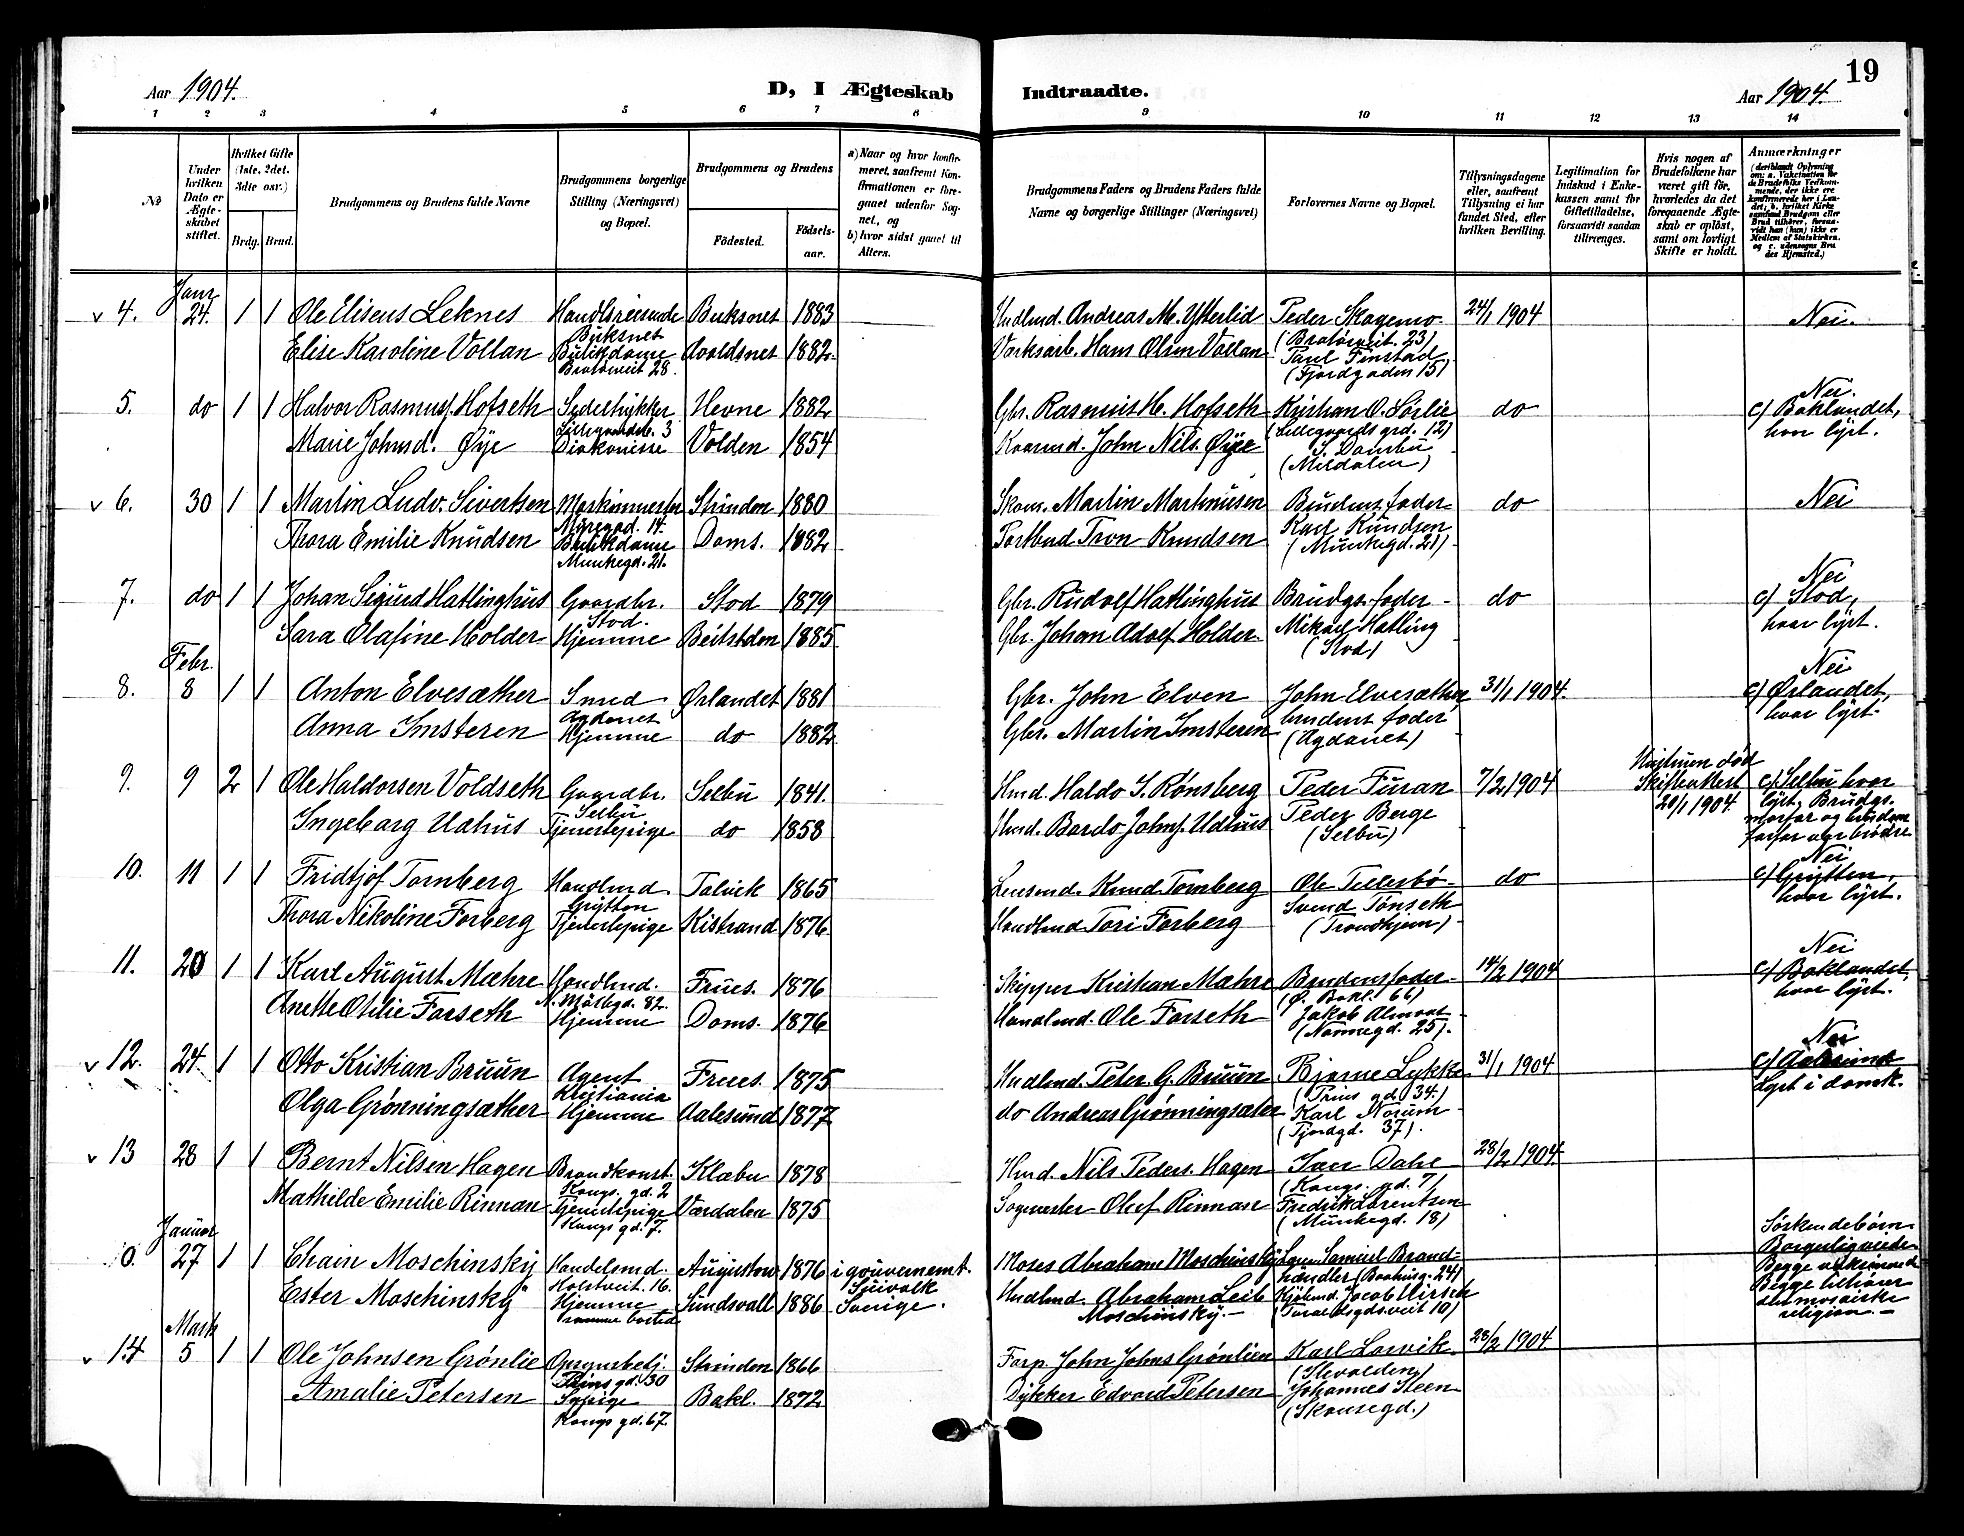 19
Aar 1904.
D, I Ægteskab Indtraadte.
Aar 1904.
1 2 3 4 5 6 7 8 9 10 11 12 13 14
No
Under hvilken Dato er Ægteskabet stiftet.
Hvilket Gifte (1ste, 2det. 3die osv.)
Brdg. Brud.
Brudgommens og Brudens fulde Navne
Brudgommens borgerlige Stilling (Næringsvei) og Bopæl.
Brudgommens og Brudens
Fødested. Fødsels-aar.
a) Naar og hvor konfirmeret, saafremt Konfirmationen er foregaaet udenfor Sognet, og
b) hvor sidst gaaet til Alters.
Brudgommens Faders og Brudens Faders fulde Navne og borgerlige Stillinger (Næringsvei)
Forlovernes Navne og Bopæl.
Tillysningsdagene eller, saafremt Tillysning ei har fundet Sted, efter hvilken Bevilling.
Legitimation for Indskud i Enkekassen samt for Giftetilladelse, forsaavidt saadan tiltrænges.
Hvis nogen af Brudefolkene har været gift før, hvorledes da det foregaaende Ægteskab er opløst, samt om lovligt Skifte er holdt.
Anmærkninger
Janr
4. 24. 1 1 Ole Eliseus Leknes Handlsreisende Buksnes 1883 Hndlmd. Andreas M. Ytterlid Peder Skagemo 24/1 1904 Nei.
Buksnes (Bratørveit. 23)
Elise Karoline Vollan Butikdame Avaldsnes 1882 Værksarb. Hans Olsen Vollan Paul Finstad
Bratørveit 28. (Fjordgaden 15)
5. do 1 1 Halvor Rasmusf. Hofseth Hevne 1882 Gbr. Rasmus H. Hofseth Kristian O. Sørlie do Nei. c) Baklandet, hvor lyst.
3 (Lillegaards grd. 12)
Marie Johnsd. Øye Diakonisse Volden 1854 John Nils. Øye
6. 30 1 1 Martin Ludv. Sivertsen Maskinmester Strinden 1880 Skom. Martin Martinusen Brudens fader do Nei
14.
Thora Emilie Knudsen Butikdame Doms. 1882 Portbud Tron Knudsen Karl Knudsen
Munkegd. 21. (Munkegd. 21)
7. do 1 1 Johan Sigurd Hatlinghus Gaardbr. Stod 1879 Gbr. Rudolf Hatlinghus Brudgs. fader do Nei c) Stod, hvor lyst.
Stod.
Sara Olafine Holder Hjemme Beitstden 1885 Gbr. Johan Adolf Holder Mikael Hatling
(Stod)
Febr.
8. 8 1 1 Anton Elvesæther Smed Ørlandet 1881 Gbr. John Elven John Elvesæther 31/1 1904. Nei c) Ørlandet, hvor lyst.
Agdenes
Anna Imsteren Hjemme do 1882 Gbr. Martin Imsteren brudens fader
(Agdenes)
9. 9 2 1 Ole Haldorsen Voldseth Gaardbr. Selbu 1841. Hmd. Haldo J. Rønsberg Peder Furan 7/2 1904 Hustruen død Skifteattest 20/1 1904. c) Selbu hvor lyst, Brudgs. morfar og brudens farfar var brødre
Selbu
Ingeborg Uthus Tjenestepige do 1858 Hmd. Bardo Johnf. Uthus Peder Berge
(Selbu)
10. 11 1 1 Fridtjof Tornberg Handlmd. Talvik 1865 Lensmd. Knud Tornberg Ole Tillerbø do Nei c) Grytten, hvor lyst.
Grytten
Thora Nikoline Forberg Tjenestepige Kistrand 1876 Handlmd Tori Forberg Svend Tønseth
(Trondhjem)
11. 20 1 1 Karl August Mæhre Handlmd. Frues. 1876 Skipper Kristian Mæhre Brudensfader 14/2 1904 Nei c) Baklandet, hvor lyst.
82. (Ø. Bakl. 66)
Anette Otilie Forseth Hjemme Doms. 1876 Handlmd. Ole Forseth Jakob Almaas
(Nonnegd. 25).
12. 24. 1 1 Otto Kristian Bruun Agent Frues. 1875 Hndlmd. Peter G. Bruun Bjarne Lykke 31/1 1904 Nei c) Aalesund Lyst i domk.
Kristiania (Prins gd 34.)
Olga Grønningsæther Hjemme Aalesund 1877 do Andreas Grønningsæter Karl Norum
(Fjordgd. 37).
13 28 1 1 Bernt Nilsen Hagen Brandkonst. Klæbu 1878 Hmd. Nils Peders. Hagen Ivar Dahl 28/2 1904
Kongs. gd. 2 (Kongs. gd. 7)
Mathilde Emilie Rinnan Tjenestepige Værdalen 1875 Sagmester Oluf Rinnan Fredrik Lorentsen
Kongs gd. 7. (Munkegd. 18)
Januar
0. 27 1 1 Chain Moschinsky Handelsmd. Augustow 1876 i gouvernemt. Suwalk Moses Abraham Moschinsky Samuel Brandhændler (Baahusg. 24) Søskendebørn. Borgerligviede Begge ukonfirmerede Begge tilhører den mosaiske religion.
Holstveit. 16.
Ester Moschinsky Hjemme Sundsvall 1886 Sverige. Hndlmd. Abraham Leib Moschinsky. Jacob Hirsch
Marts
14 5 1 1 Ole Johnsen Grønlie Strinden 1866 Forp. John Johns Grønlien Karl Larvik 28/2 1904
Prins gd. 30 (Ilevolden)
Amalie Petersen Sypige Bakl. 1872 Dykker Edvard Petersen Johannes Steen
Kongs gd. 67. (Skansegd.)